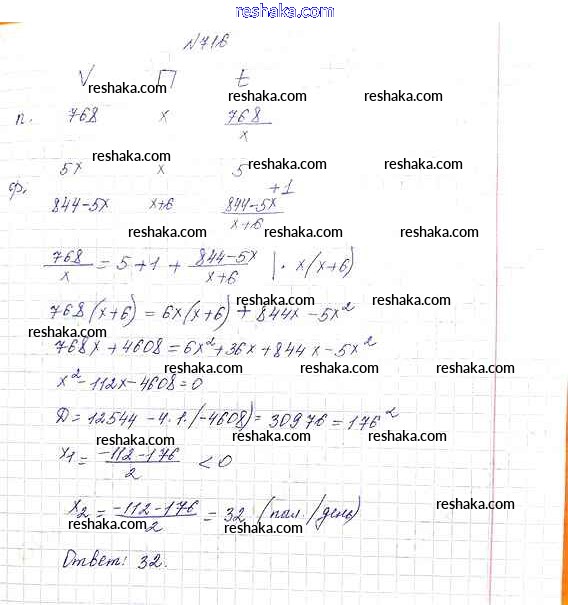 reshaka.com
reshaka.com
N 716
V П t
reshaka.com
reshaka.com reshaka.com
п. 768 x 768/x
reshaka.com
reshaka.com
5x x 5
ф. +1
844-5x x+6 844-5x/x+6
reshaka.com reshaka.com
768/x = 5+1 + 844-5x/x+6 | · x(x+6)
reshaka.com reshaka.com
768(x+6) = 6x(x+6) + 844x - 5x²
reshaka.com
768x + 4608 = 6x² + 36x + 844x - 5x²
reshaka.com reshaka.com
x² - 112x - 4608 = 0
D = 12544 - 4·1·(-4608) = 30976 = 176²
reshaka.com reshaka.com
x₁ = -112-176/2 < 0
reshaka.com
x₂ = -112-176/2 = 32 (пол./день)
reshaka.com
reshaka.com
Ответ: 32.
reshaka.com